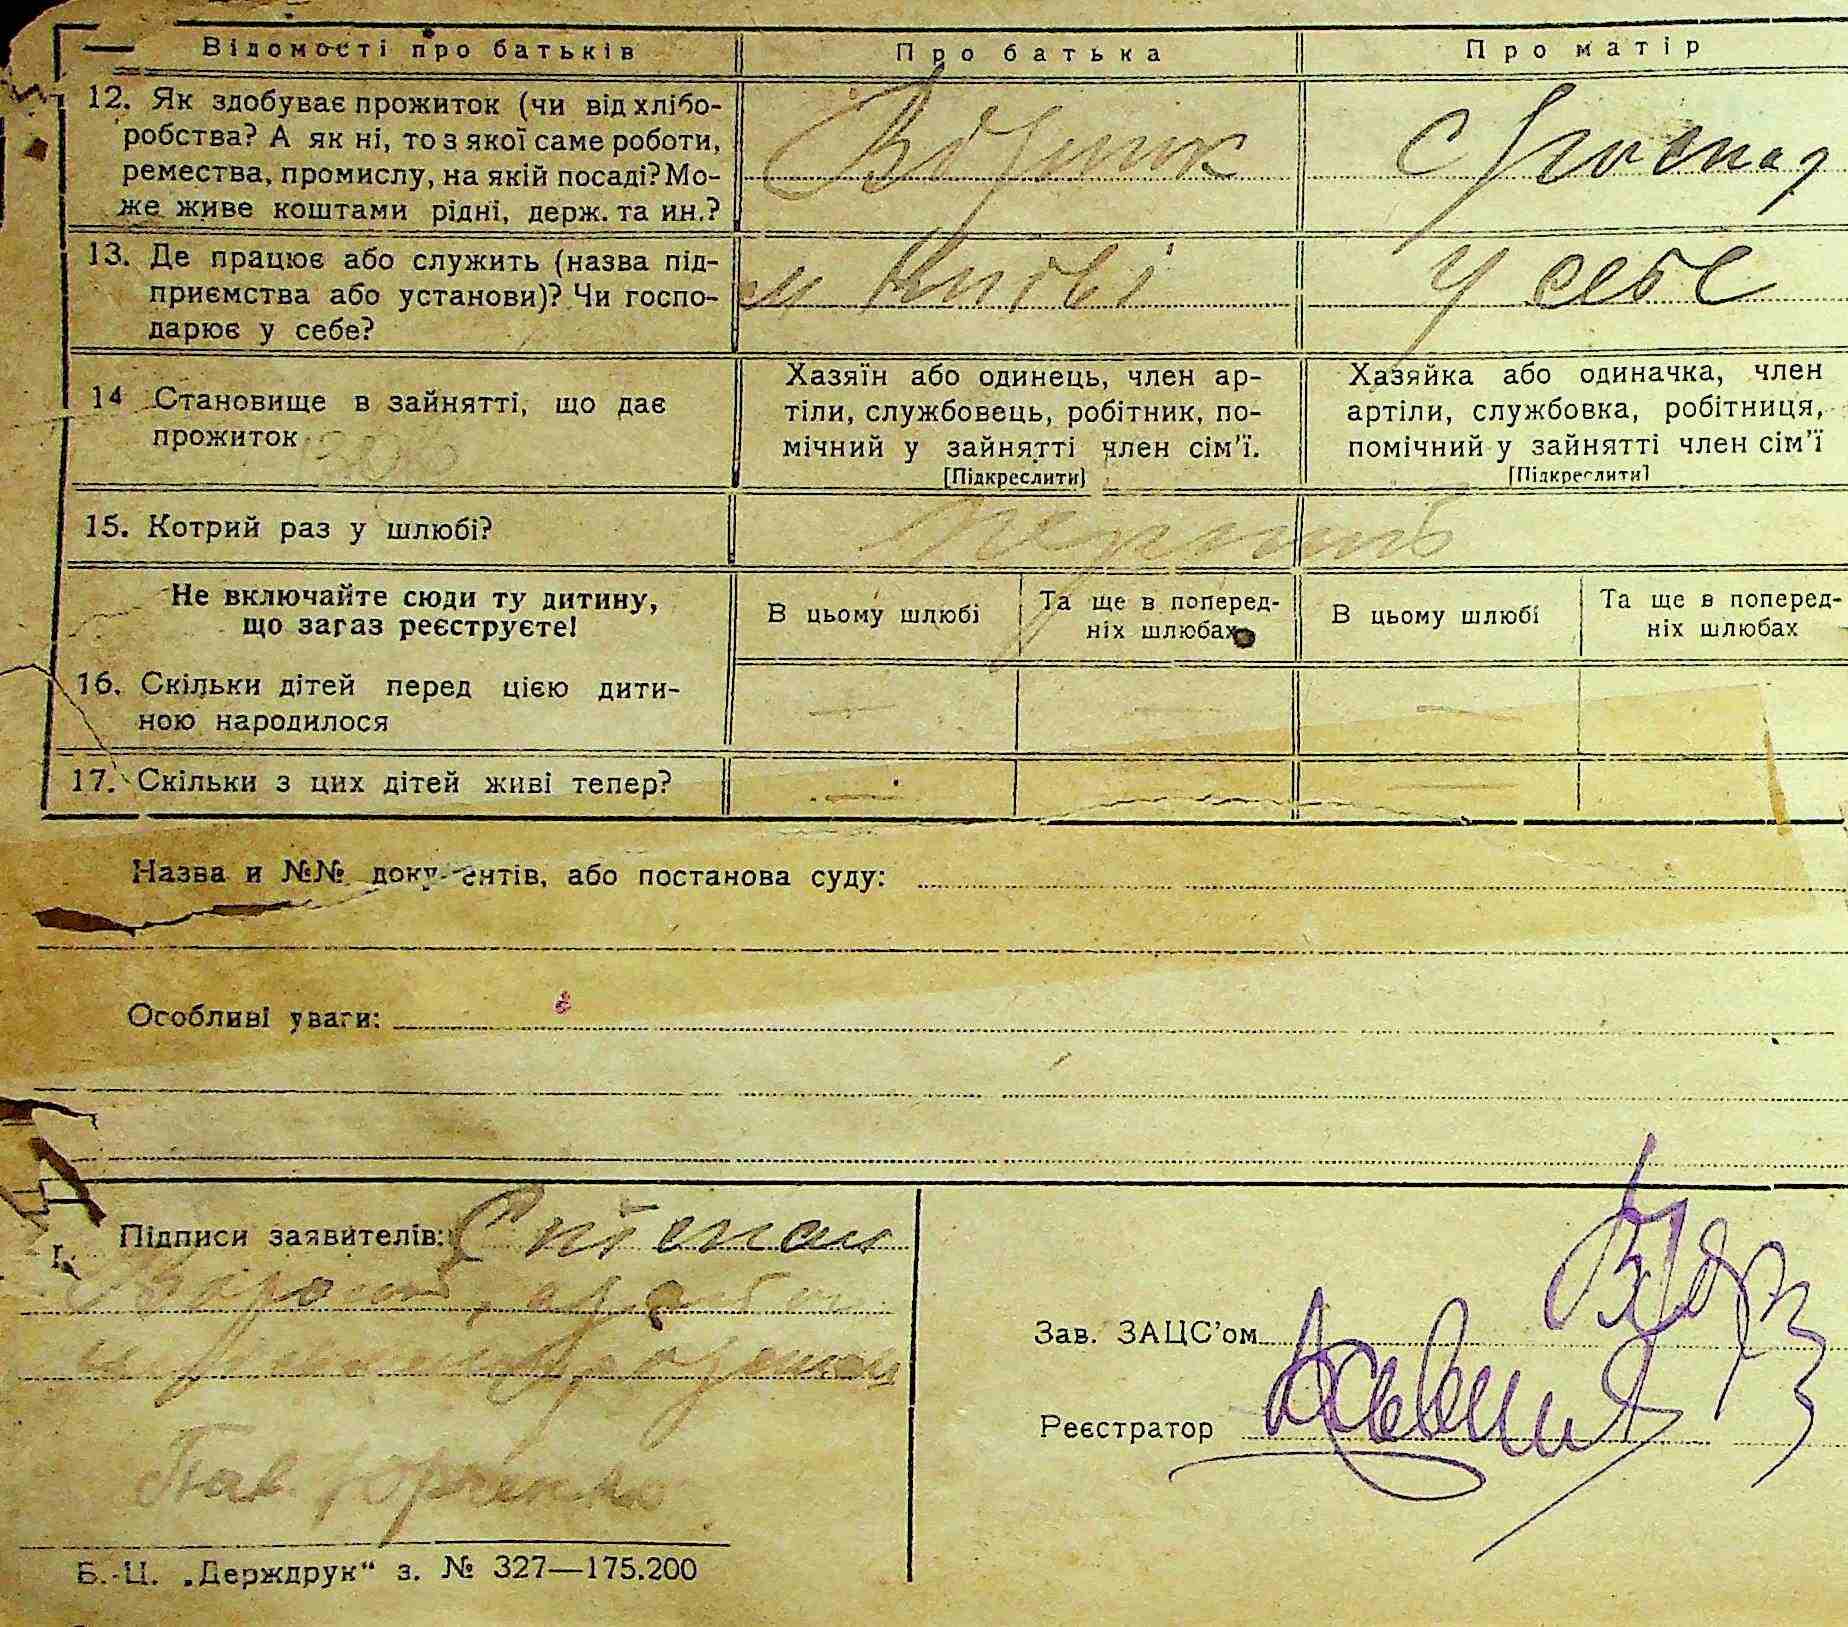 Відомості про батьків
Про батька
Про матір
12. Як здобуває прожиток (чи від хлібо-
робства? А як ні, то з якої саме роботи,
ремества, промислу, на якій посаді? Мо-
же живе коштами рідні, держ. та ин.?
13. Де працює або служить (назва під-
приємства або установи)? Чи госпо-
дарює у себе?
у себе
14 Становище в зайнятті, що дає
прожиток
Хазяїн або одинець, член ар-
тіли, службовець, робітник, по-
мічний у зайнятті член сім'ї.
[Підкреслити]
Хазяйка або одиначка, член
артіли, службовка, робітниця,
помічний у зайнятті член сім'ї
[Підкреслити]
15. Котрий раз у шлюбі?
Не включайте сюди ту дитину,
що зараз реєструєте!
В цьому шлюбі
Та ще в поперед-
ніх шлюбах
В цьому шлюбі
Та ще в поперед-
ніх шлюбах
16. Скільки дітей перед цією дити-
ною народилося
— — —
17. Скільки з цих дітей живі тепер?
— — —
Назва и №№ документів, або постанова суду:
Особливі уваги:
Підписи заявителів: Степан
Зав. ЗАЦС'ом
Реєстратор
Б.-Ц. „Держдрук“ з. № 327—175.200